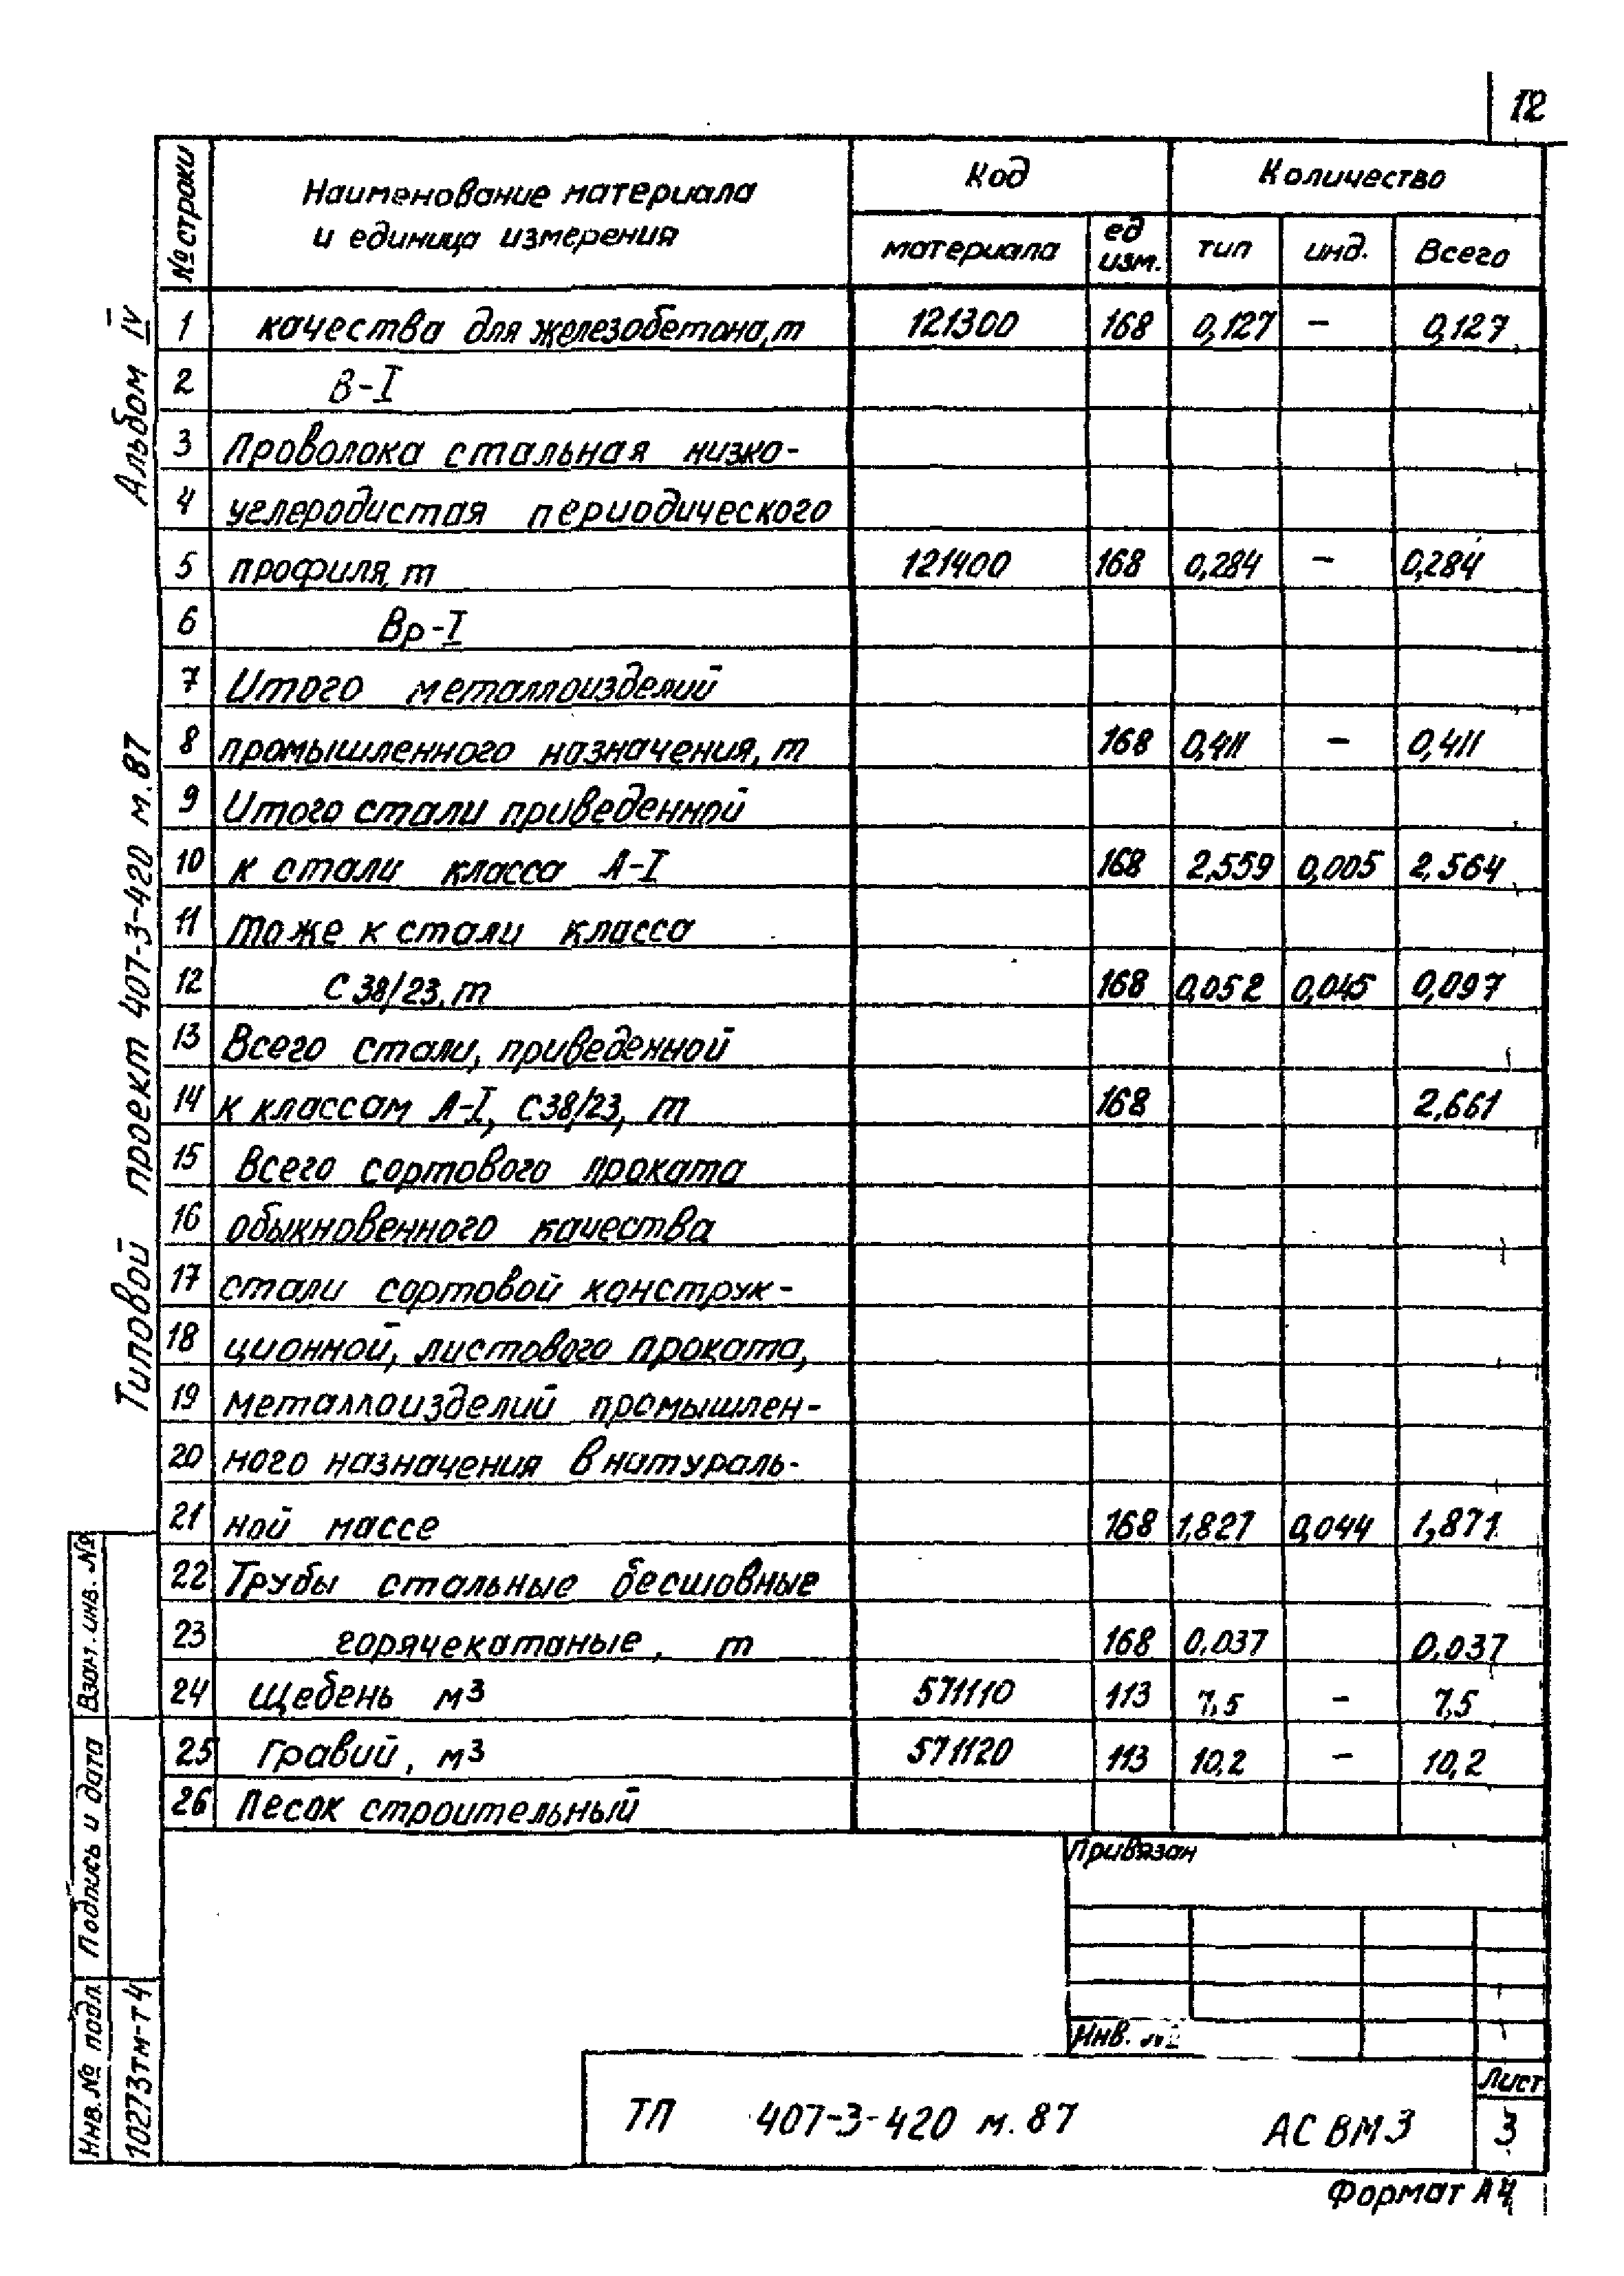 12
№ строки | Наименование материала и единица измерения | Код | Количество
материала | ед изм. | тип | инд. | Всего
1 | качества для железобетона, т | 121300 | 168 | 0,127 | – | 0,127
2 | В-I
3 | Проволока стальная низко-
4 | углеродистая периодического
5 | профиля, т | 121400 | 168 | 0,284 | – | 0,284
6 | Вр-I
7 | Итого металлоизделий
8 | промышленного назначения, т | 168 | 0,411 | – | 0,411
9 | Итого стали приведенной
10 | к стали класса А-I | 168 | 2,559 | 0,005 | 2,564
11 | тоже к стали класса
12 | С 38/23, т | 168 | 0,052 | 0,045 | 0,097
13 | Всего стали, приведенной
14 | к классам А-I, С38/23, т | 168 | 2,661
15 | Всего сортового проката
16 | обыкновенного качества
17 | стали сортовой конструк-
18 | ционной, листового проката,
19 | металлоизделий промышлен-
20 | ного назначения в натураль-
21 | ной массе | 168 | 1,827 | 0,044 | 1,871
22 | Трубы стальные бесшовные
23 | горячекатаные, т | 168 | 0,037 | 0,037
24 | Щебень м3 | 571110 | 113 | 7,5 | – | 7,5
25 | Гравий, м3 | 571120 | 113 | 10,2 | – | 10,2
26 | Песок строительный
Типовой проект 407-3-420 м.87 Альбом IV
Взам. инв. №
Подпись и дата
Инв. № подл
10273тм-т4
Привязан
Инв. №
ТП 407-3-420 м.87 АС ВМ3
Лист
3
Формат А4